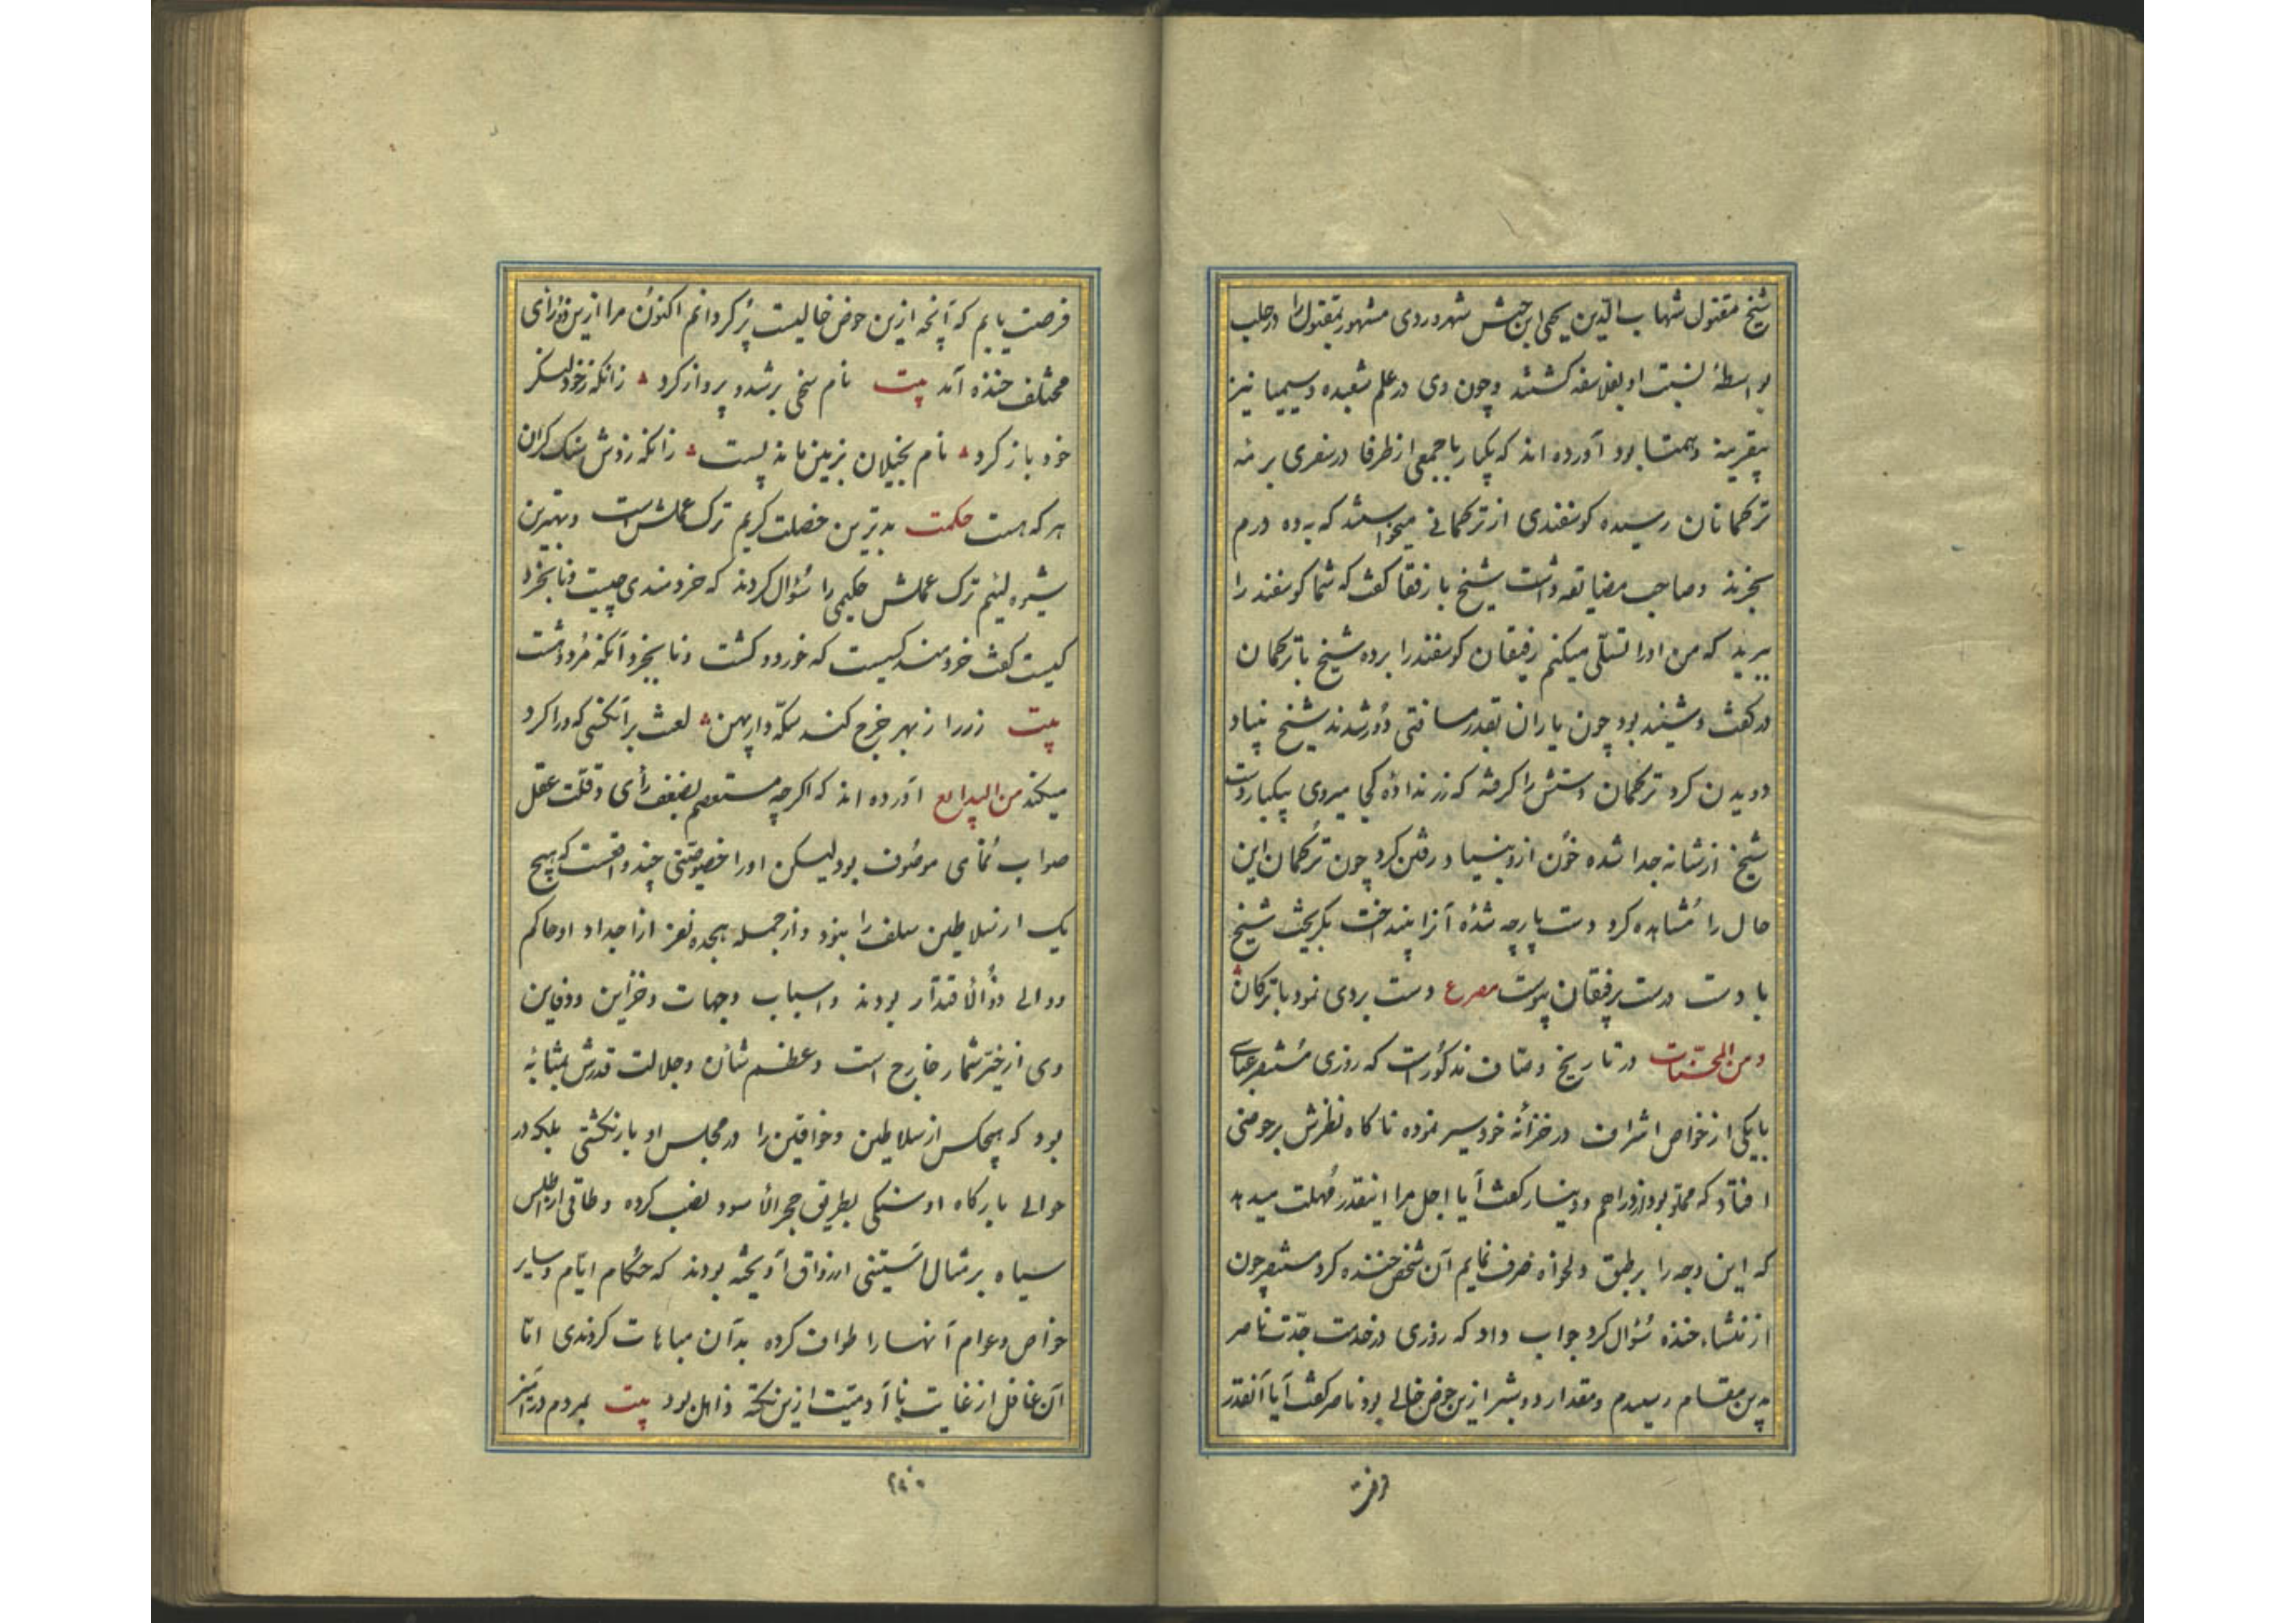 شیخ مقتول شهاب الدین یحیی ابن حبش شهروردی مشهور بمقتول را در حلب
بواسطهٔ نسبت او بفلاسفه کشتند وچون وی در علم شعبده وسیمیا نیز
بیقرینه وهمتا بود آورده اند که یکبار با جمعی از ظرفا در سفری برمهٔ
ترکمانان رسیده کوسفندی از ترکمانی میخواستند که به ده درم
بخرند وصاحب مضایقه داشت شیخ با رفقا کفت که شما کوسفند را
ببرید که من اورا تسلّی میکنم رفیقان کوسفند را برده شیخ با ترکمان
در کفت وشنید بود چون یاران بقدر مسافتی دور شدند شیخ بنیاد
دویدن کرد ترکمان دستش را کرفته که زر نداده کجا میروی بیکبار دست
شیخ از شانه جدا شده خون ازو بنیاد رفتن کرد چون ترکمان این
حال را مشاهده کرد دست پارچه شدهٔ آنرا بینداخت بکریخت شیخ
با دست درست برفیقان پیوست مصرع دست بردی نمود با ترکان
ومن المحسّنات در تاریخ وصّاف مذکورست که روزی مستنصر عباسی
با یکی از خواص اشراف در خزانه خود سیر نموده ناکاه نظرش بر حوضی
افتاد که مملو بود از دراهم ودینار کفت آیا اجل مرا اینقدر مهلت میدهد
که این وجه را بر طبق دلخواه صرف نمایم آن شخص خنده کرد مستنصر چون
از منشاء خنده سُؤال کرد جواب داد که روزی در خدمت جدّت ناصر
بدین مقام رسیدم ومقدار دو بشبر ازین حوض خالی بود ناصر کفت آیا آنقدر
فرصت
فرصت یابم که آنچه ازین حوض خالیست پُر کردانم اکنون مرا ازین دو رأی
مختلف خنده آمد بیت نام سخی بر شد و پرواز کرد زانکه زر خود لنکر
خود باز کرد نام بخیلان بزمین ماند پست زانکه زرش سنک کران
هر که هست حکمت بدترین خصلت کریم ترک عملش است وبهترین
شیوه لئیم ترک عملش حکیمی را سُؤال کردند که خردمندی چیست ونابخرد
کیست کفت خردمند کسیست که خورد وکشت ونابخرد آنکه مُرد وهشت
بیت زر را ز بهر خرج کند سکّه وار پهن لعنت بر آنکسی که ورا کرد
میکند من البدایع آورده اند که اکرچه مستعصم بضعف رأی وقلّت عقل
صواب نُمای موصُوف بود لیکن اورا خصوصیّتی چند واقعست که هیچ
یک از سلاطین سلف را نبود واز جمله هجده نفر از اجداد او حاکم
ووالی ذُوالاقتدار بودند واسباب وجهات وخزاین ودفاین
وی از حیّز شمار خارج است وعظم شأن وجلالت قدرش بمثابهٔ
بود که هیچکس از سلاطین وخواقین را در مجلس او بار نکشتی بلکه در
حوالی بارکاه او سنکی بطریق حجرالاسود نصب کرده وطاقی از اطلس
سیاه بر مثال آستینی از رواق آویخته بودند که حکّام ایّام وسایر
خواص وعوام آنها را طواف کرده بدان مباهات کردندی امّا
آن غافل از غایت ناآدمیّت ازین نکته ذاهل بود بیت بمردم در آمیز